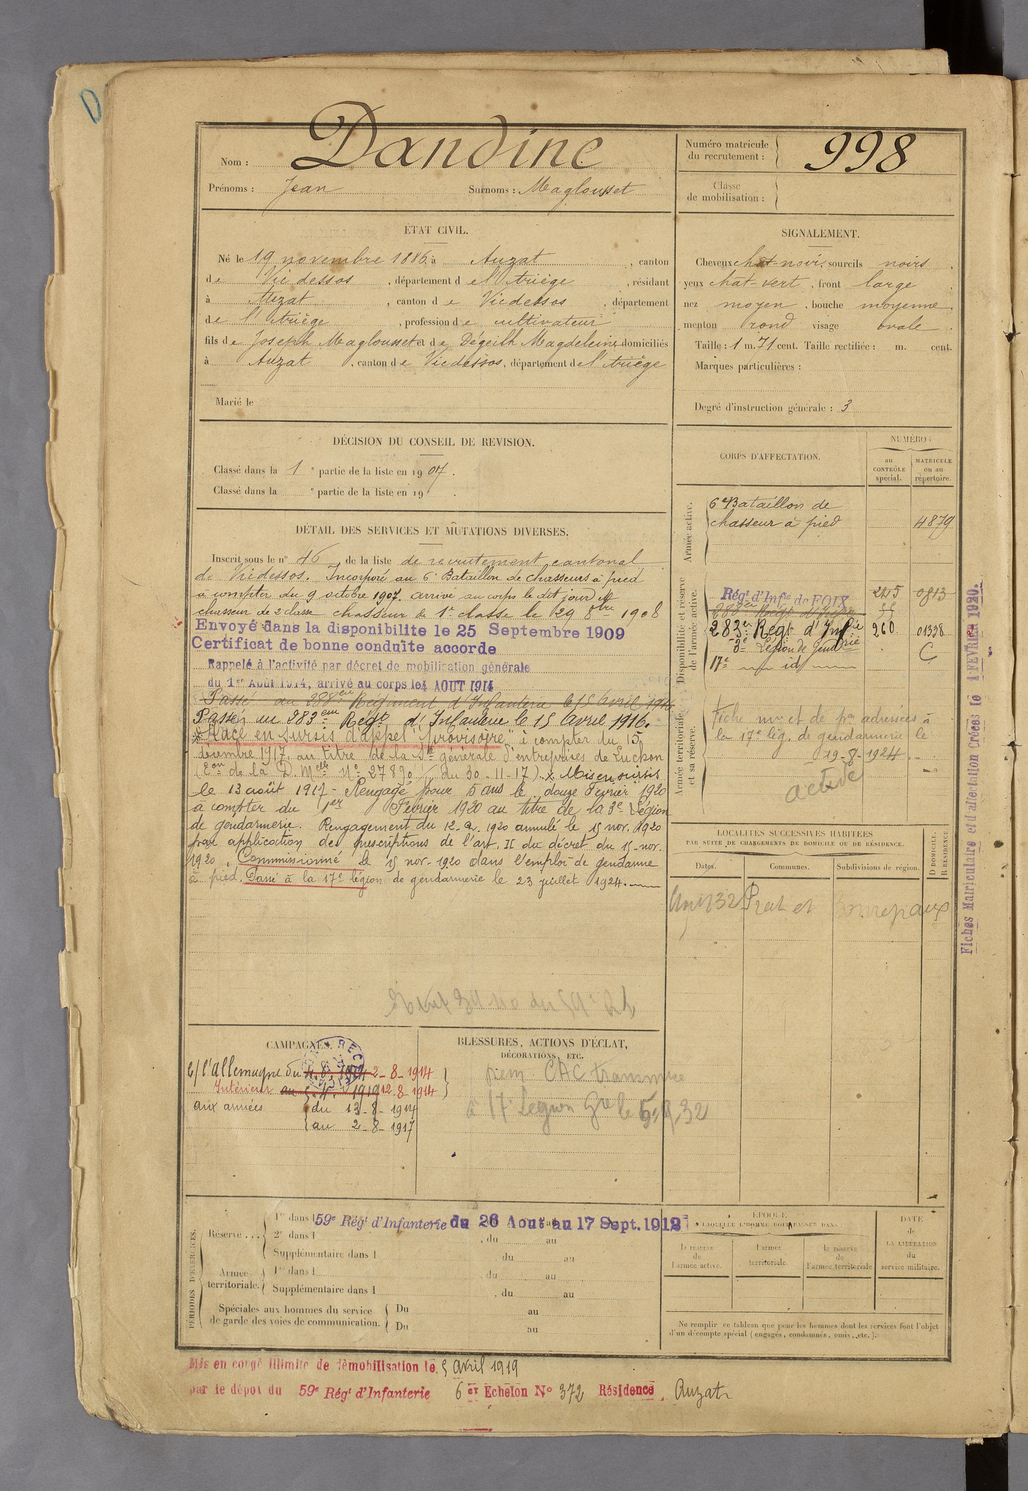 D
Nom : Dandine
Numéro matricule du recrutement : 998
Prénoms : Jean Surnoms : Maglousset
Classe de mobilisation :
ETAT CIVIL.
Né le 19 novembre 1886, à Auzat, canton
de Vicdessos, département de l'Ariège, résidant
à Auzat, canton de Vicdessos, département
de l'Ariège, profession de cultivateur
fils de Joseph Maglousset et de Dégeilh Magdeleine domiciliés
à Auzat, canton de Vicdessos, département de l'Ariège
Marié le
SIGNALEMENT.
Cheveux chat-noir sourcils noirs
yeux chat-vert, front large
nez moyen, bouche moyenne
menton rond visage ovale
Taille : 1 m. 71 cent. Taille rectifiée : m. cent.
Marques particulières :
Degré d'instruction générale : 3
DÉCISION DU CONSEIL DE REVISION.
Classé dans la 1e partie de la liste en 1907.
Classé dans la e partie de la liste en 19 .
DÉTAIL DES SERVICES ET MUTATIONS DIVERSES.
Inscrit sous le n° 46 de la liste de recrutement cantonal
de Vicdessos. Incorporé au 6e Bataillon de chasseurs à pied
à compter du 9 octobre 1907, arrivé au corps le dit jour et
chasseur de 2e classe chasseur de 1e classe le 29 8bre 1908
Envoyé dans la disponibilite le 25 Septembre 1909
Certificat de bonne conduite accorde
Rappelé à l'activité par décret de mobilisation générale
du 1er Août 1914, arrivé au corps le 4 AOUT 1914
Passé au 288eme Régiment d'Infanterie le 15 Avril 1916
Passé au 283eme Régt d'Infanterie le 15 Avril 1916.
Placé en sursis d'appel "Provisoire" à compter du 15
décembre 1917, au titre de la Sté générale d'entreprises de Luchon
(Don de la D. Mere N° 27890 du 30-11-17) x Mis en sursis
le 13 août 1917 - Rengagé pour 5 ans le douze Février 1920
à compter du 1er Février 1920 au titre de la 3e Légion
de gendarmerie. Rengagement du 12-2-1920 annulé le 15 nov. 1920
par application des prescriptions de l'art. II du décret du 15-nov.
1920, Commissionné le 15 nov. 1920 dans l'emploi de gendarme
à pied. Passé à la 17e légion de gendarmerie le 23 juillet 1924.
CORPS D'AFFECTATION.
NUMÉRO
au CONTRÔLE spécial.
MATRICULE ou au répertoire.
Armée active.
6e Bataillon de
chasseur à pied 4879
Disponibilité et réserve de l'armée active.
Régt d'Infie de FOIX 2215 0813
283er Régt d'Infie 260 01338
3e Légion de Gendrie
17e - id - C
Armée territoriale et sa réserve.
fiche mre et de pon adressées à
la 17e lég. de gendarmerie le
19-8-1924
active
LOCALITÉS SUCCESSIVES HABITÉES
PAR SUITE DE CHANGEMENTS DE DOMICILE OU DE RÉSIDENCE.
Dates. Communes. Subdivisions de région. D DOMICILE. R RÉSIDENCE.
32 Prat et Bonrepaux
Fiches Matriculaire et d'affectation Créées le 1 FÉVRIER 1920.
CAMPAGNES.
c/ l'allemagne du 2-8-1914
Intérieur au 12-8-1914
aux armées du 13-8-1914
au 2-8-1917
BLESSURES, ACTIONS D'ÉCLAT,
DÉCORATIONS, ETC.
CAC transmise
à 17e Légion Gie le 5.9.32
PÉRIODES D'EXERCICES.
Réserve ...
1re dans l 59e Régt d'Infanterie du 26 Aout au 17 Sept. 1912
2e dans l , du au
Supplémentaire dans l du au
Armée territoriale.
1re dans l du au
Supplémentaire dans l , du au
Spéciales aux hommes du service de garde des voies de communication.
Du au
Du au
ÉPOQUE
À LAQUELLE L'HOMME DOIT PASSER DANS
la réserve de l'armée active.
l'armée territoriale.
la réserve de l'armée territoriale
DATE de LA LIBÉRATION du service militaire.
Ne remplir ce tableau que pour les hommes dont les services font l'objet
d'un décompte spécial (engagés, condamnés, omis, etc.).
Mis en congé illimité de démobilisation le 5 avril 1919
par le dépot du 59e Régt d'Infanterie 6er Echelon N° 372 Résidence Auzat